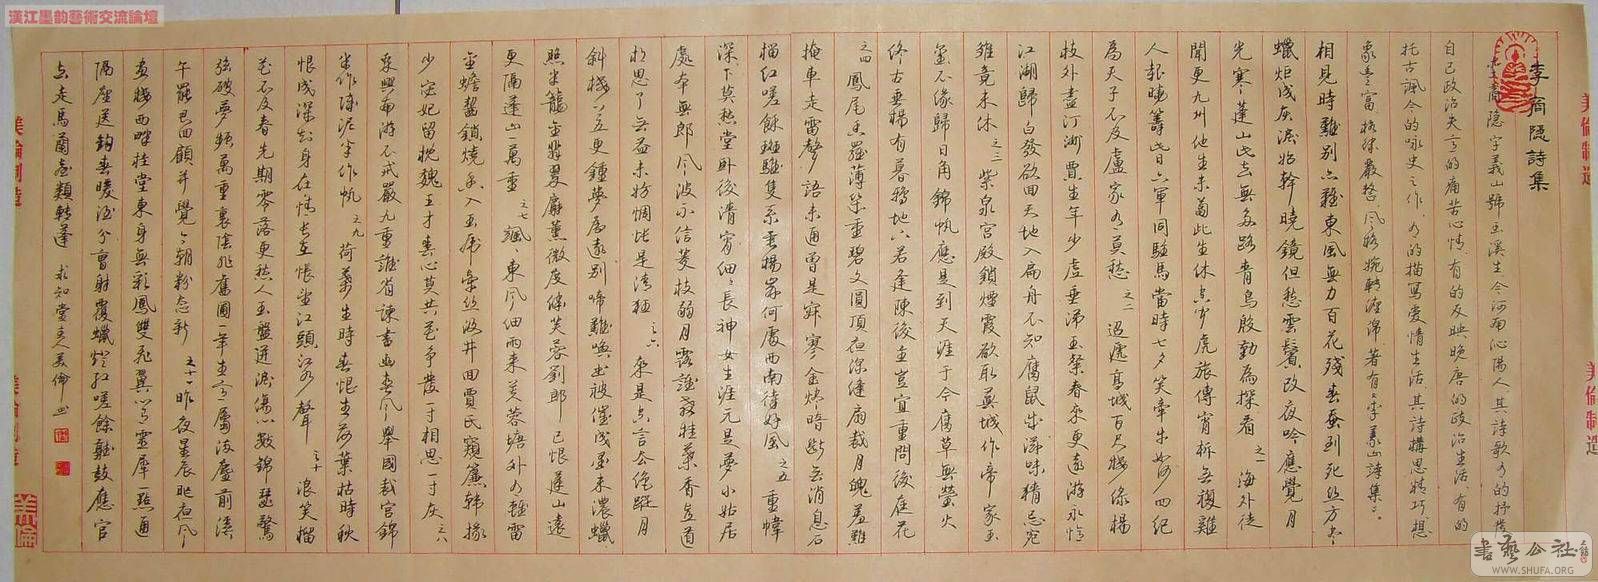 漢江墨韵藝術交流論壇
李商隐詩集
李商隐字義山號玉溪生今河南沁陽人其詩歌有的抒發
自己政治失意的痛苦心情有的反映晚唐的政治生活有的
托古諷今的咏史之作有的描写爱情生活其詩構思精巧想
象豐富格律嚴整風格婉轉纏綿著有《李義山詩集》。
相見時難別亦難東風無力百花殘春蚕到死丝方尽
蠟炬成灰淚始幹曉鏡但愁雲鬢改夜吟應覺月
光寒蓬山此去無多路青鳥殷勤為探看 之一 海外徒
聞更九州他生未蔔此生休空聞虎旅傳宵柝無復雞
人報曉籌此日六軍同駐馬當時七夕笑牽牛如何四紀
為天子不及盧家有莫愁 之二 迢遞高城百尺樓綠楊
枝外盡汀洲賈生年少虛垂涕王粲春來更遠游永憶
江湖歸白發欲回天地入扁舟不知腐鼠成滋味猜忌鴛
雛竟未休 之三 紫泉宮殿鎖煙霞欲取蕪城作帝家玉
璽不緣歸日角錦帆應是到天涯于今腐草無螢火
終古垂楊有暮鴉地下若逢陳後主豈宜重問後庭花
之四 鳳尾香羅薄幾重碧文圓頂夜深縫扇裁月魄羞難
掩車走雷聲語未通曾是寂寥金燼暗斷無消息石
榴紅嗟餘斑騅隻系垂楊岸何處西南待好風 之五 重幃
深下莫愁堂卧後清宵細々長神女生涯元是夢小姑居
處本無郎風波不信菱枝弱月露誰教桂葉香直道
相思了無益未妨惆悵是清狂 之六 來是空言去绝蹤月
斜樓上五更鐘夢為遠別啼難喚書被催成墨未濃蠟
照半籠金翡翠麝薰微度綉芙蓉劉郎已恨蓬山遠
更隔蓬山一萬重 之七 颯東風細雨來芙蓉塘外有輕雷
金蟾齧鎖燒香入玉虎牽絲汲井回賈氏窺簾韓掾
少宓妃留枕魏王才春心莫共花爭發一寸相思一寸灰 之八
乘興南游不戒嚴九重誰省諫書函春風舉國裁宮錦
半作障泥半作帆 之九 荷葉生時春恨生荷葉枯時秋
恨成深知身在情長在悵望江頭江水聲 之十 浪笑榴
花不及春先期零落更愁人玉盤迸淚傷心數錦瑟驚
弦破夢頻萬重裏陰非舊圃一年生意屬流塵前溪
午罷君回顧并覺今朝粉態新 之十一 昨夜星辰昨夜風
畫樓西畔桂堂東身無彩鳳雙飛翼心有靈犀一點通
隔座送鈎春暖酒分曹射覆蠟燈紅嗟餘聽鼓應官
去走馬蘭台類轉蓬 求知堂主人美倫书
美倫制造
美倫制造
美倫
書藝公社
WWW.SHUFA.ORG